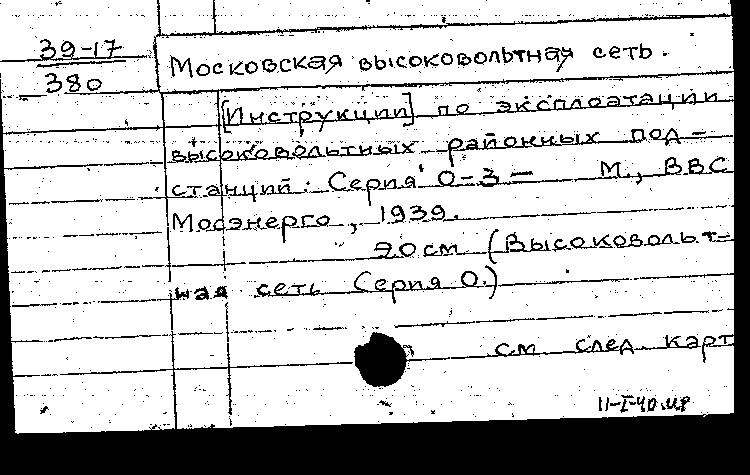 39-17
380
Московская высоковольтная сеть.
[Инструкции] по эксплоатации
высоковольтных районных под-
станций. Серия О-3 — М., ВВС
Мосэнерго, 1939.
20см (Высоковольт-
ная сеть Серия О.)
см след. карт
11-I-40.